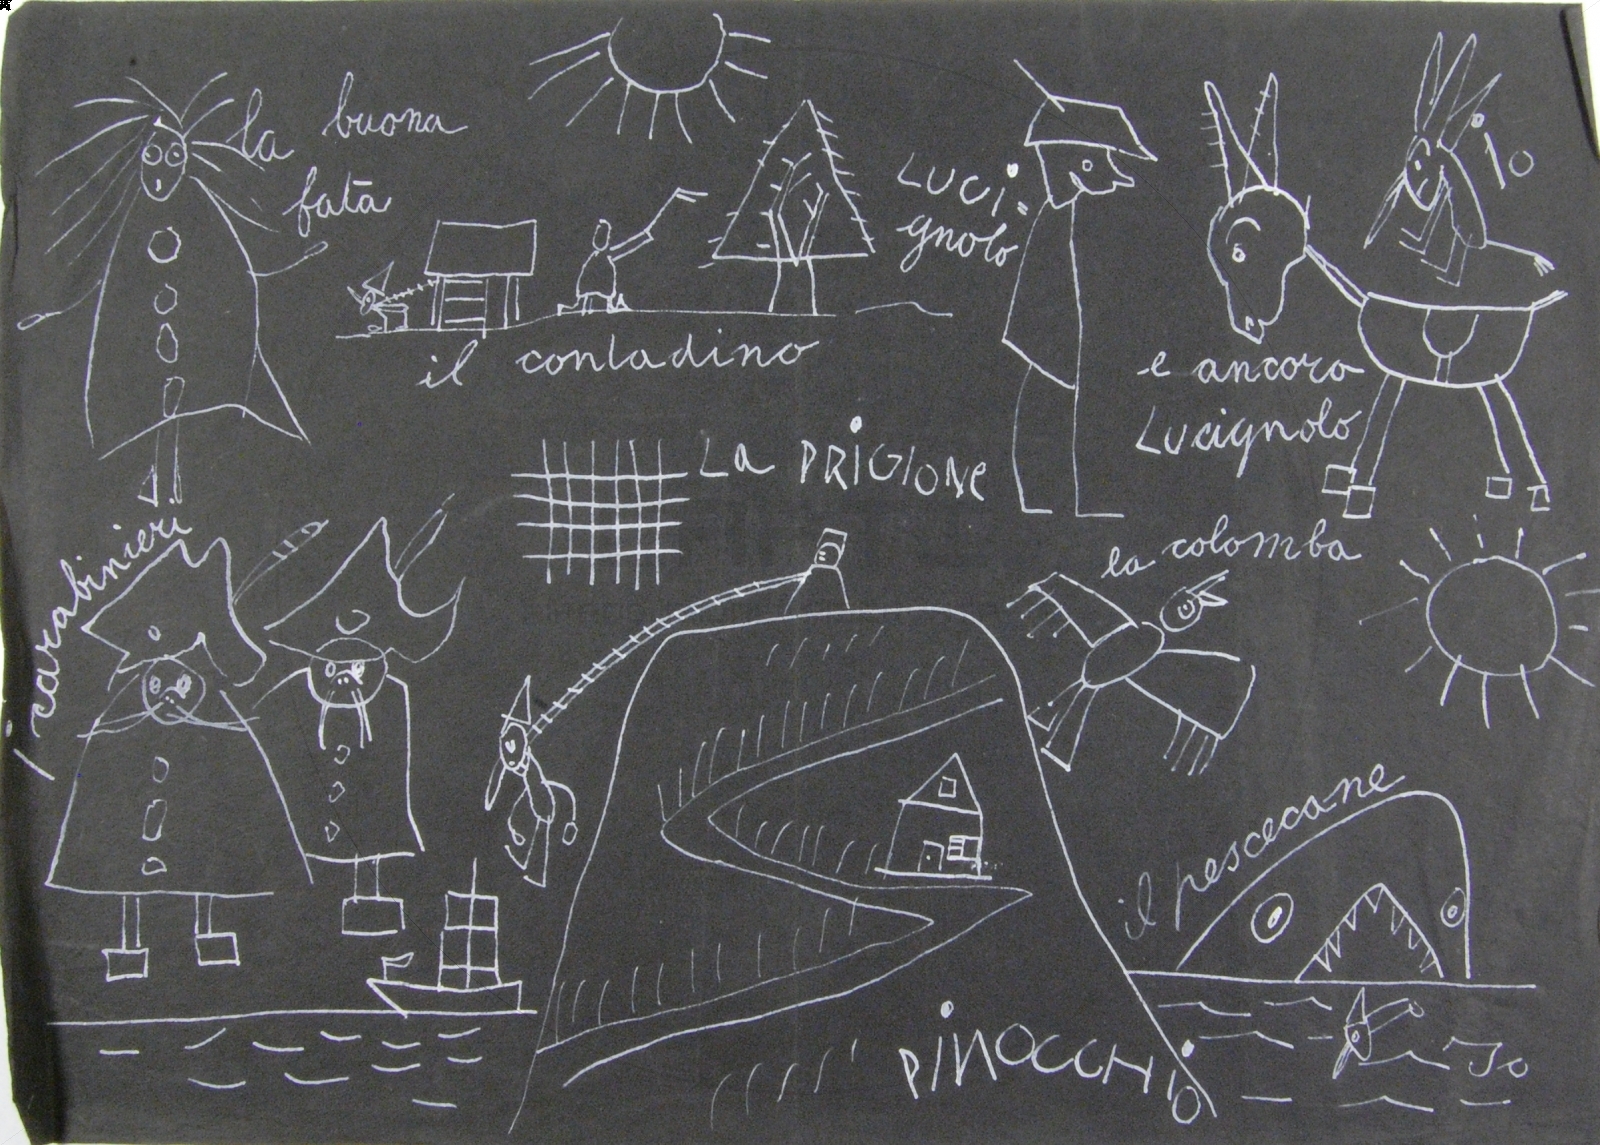 la buona
fata
il contadino
LUCi=
gnolo
Io
e ancora
Lucignolo
La PRiGIONe
i carabinieri
la colomba
il pescecane
PiNOCCHiO
Io